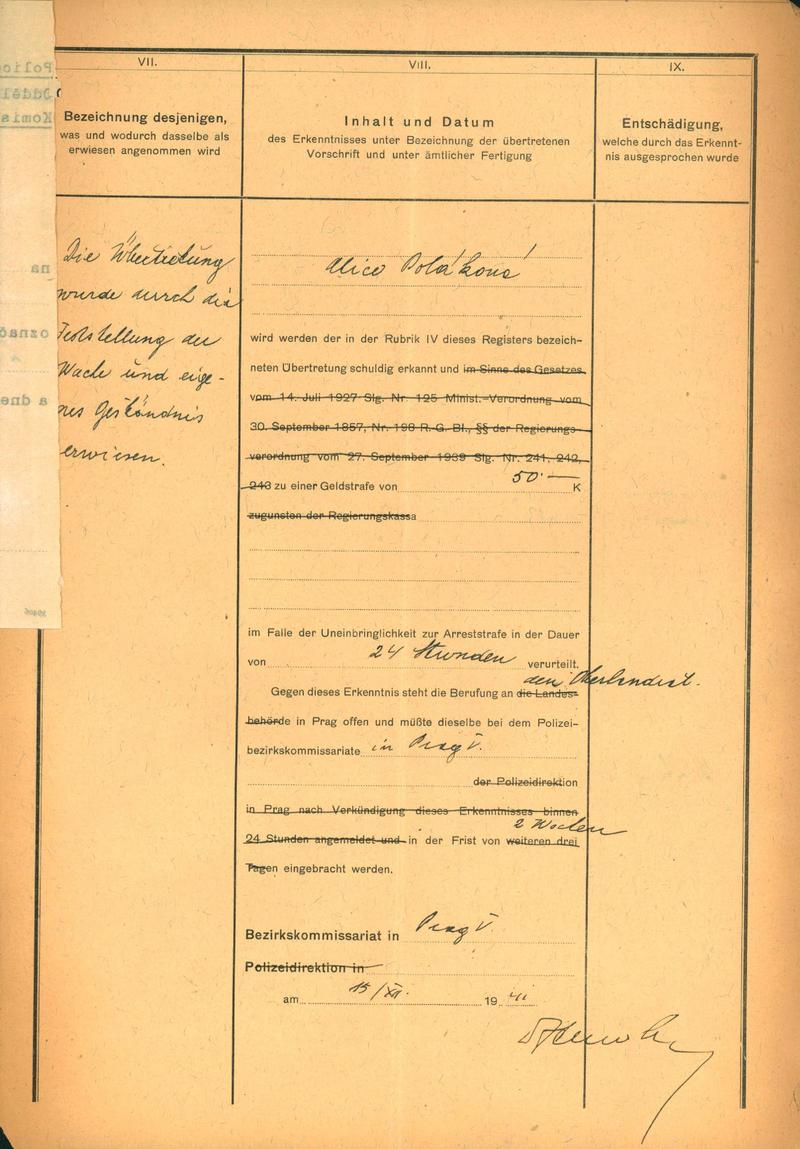 VII.
Bezeichnung desjenigen,
was und wodurch dasselbe als
erwiesen angenommen wird
VIII.
Inhalt und Datum
des Erkenntnisses unter Bezeichnung der übertretenen
Vorschrift und unter ämtlicher Fertigung
IX.
Entschädigung,
welche durch das Erkennt-
nis ausgesprochen wurde
Die Übertretung
wurde durch die
Feststellung der
Wache und eige-
nes Geständnis
erwiesen.
Alice Poláková
wird werden der in der Rubrik IV dieses Registers bezeich-
neten Übertretung schuldig erkannt und im Sinne des Gesetzes
vom 14. Juli 1927 Slg. Nr. 125 Minist.-Verordnung vom
30. September 1857, Nr. 198 R. G. Bl., §§ der Regierungs-
verordnung vom 27. September 1939 Slg. Nr. 241, 242,
50·—
243 zu einer Geldstrafe von K
zugunsten der Regierungskassa
im Falle der Uneinbringlichkeit zur Arreststrafe in der Dauer
von 24 Stunden verurteilt.
Gegen dieses Erkenntnis steht die Berufung an die Landes-
behörde in Prag offen und müßte dieselbe bei dem Polizei-
bezirkskommissariate in Prag V.
der Polizeidirektion
in Prag nach Verkündigung dieses Erkenntnisses binnen
2 Wochen
24 Stunden angemeldet und in der Frist von weiteren drei
Tagen eingebracht werden.
Bezirkskommissariat in Prag V.
Polizeidirektion in
am 15/XII. 19 41